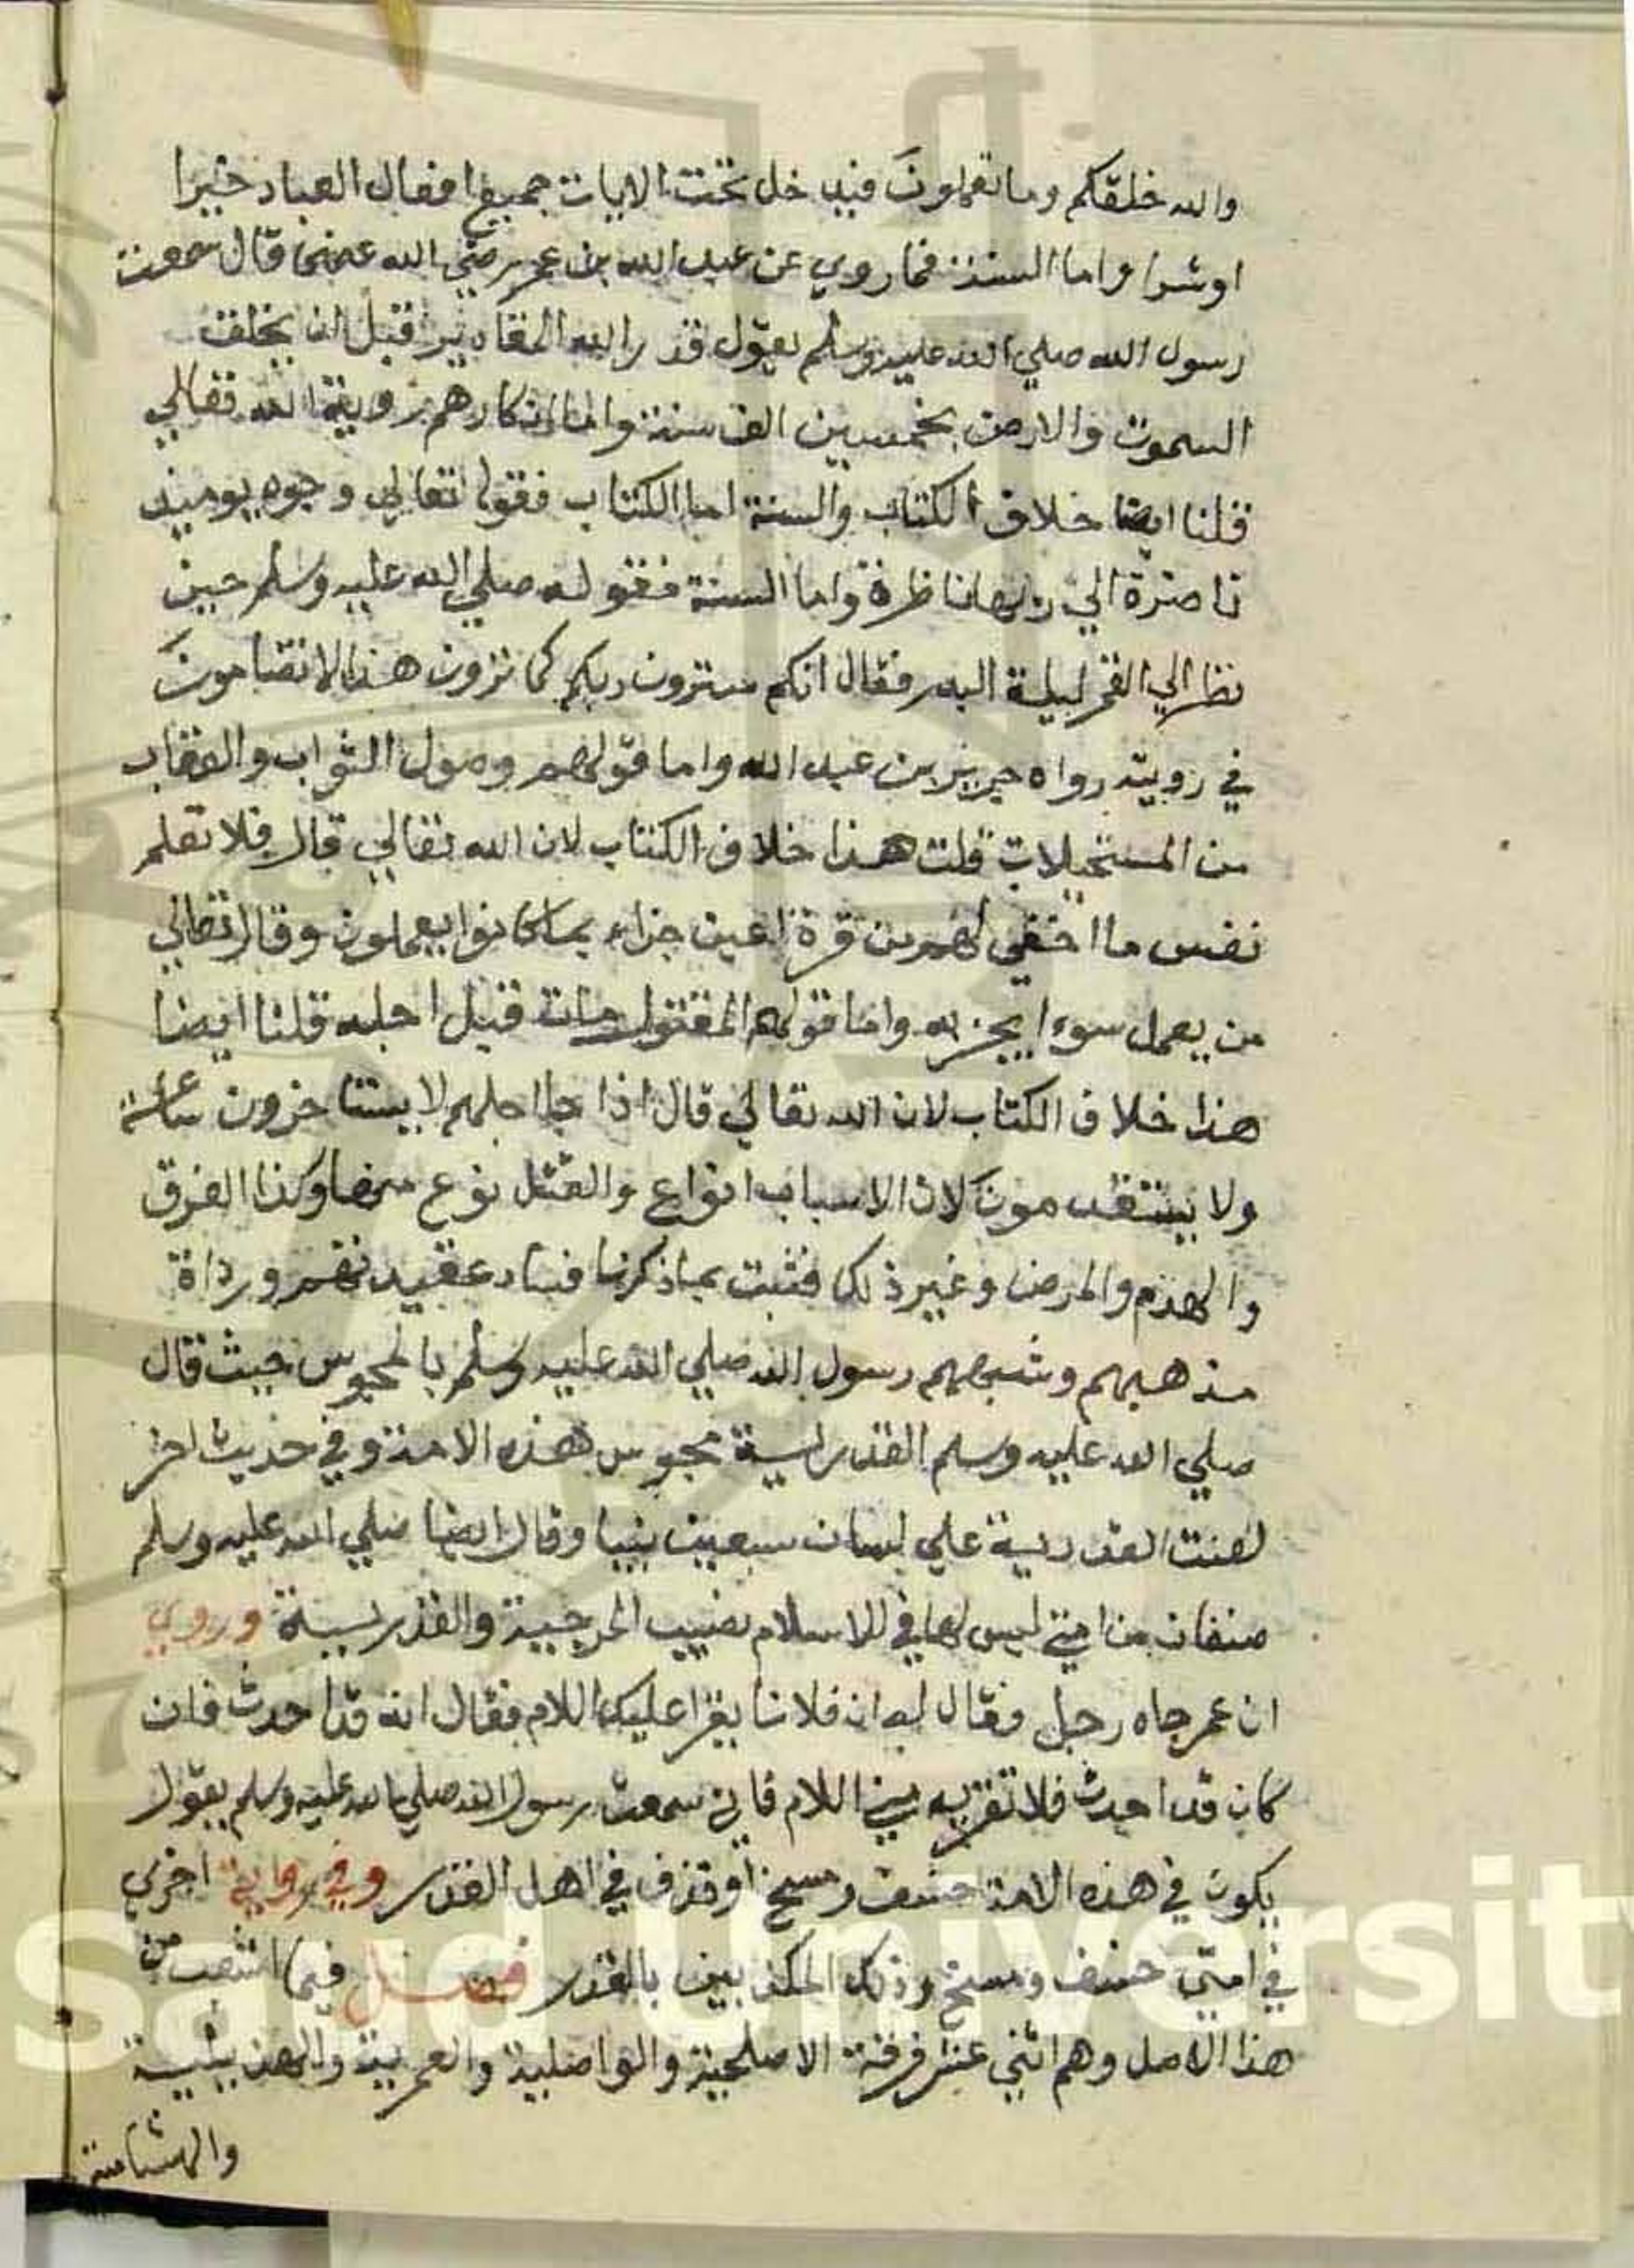 والله خلقكم وما تعملون فيدخل تحت الايات جميع افعال العباد خيرا
اوشرا واما السنة فما روي عن عبد الله بن عمر رضي الله عنهما قال سمعت
رسول الله صلي الله عليه وسلم يقول قدر الله المقادير قبل ان يخلق
السموت والارض بخمسين الف سنة واما انكارهم روية الله تعالي
قلنا ايضا خلاف الكتاب والسنة اما الكتاب فقوله تعالي وجوه يوميذ
ناضرة الي ربها ناظرة واما السنة فقوله صلي الله عليه وسلم حين
نظر الي القمر ليلة البدر فقال انكم سترون ربكم كما ترون هذا لا تضامون
في رويته رواه جرير بن عبد الله واما قولهم وصول الثواب والعقاب
من المستحيلات قلت هذا خلاف الكتاب لان الله تعالي قال فلا تعلم
نفس ما اخفي لهم من قرة اعين جزاء بما كانوا يعملون وقال تعالي
من يعمل سوءا يجز به واما قولهم المقتول مات قبل اجله قلنا ايضا
هذا خلاف الكتاب لان الله تعالي قال اذا جا اجلهم لا يستاخرون ساعة
ولا يستقدمون لان الاسباب انواع والقتل نوع منها وكذا الغرق
والهدم والمرض وغير ذلك فثبت بما ذكرنا فساد عقيدتهم ورداة
مذهبهم وشبههم رسول الله صلي الله عليه وسلم بالمجوس حيث قال
صلي الله عليه وسلم القدرية مجوس هذه الامة وفي حديث اخر
لعنت القدرية علي لسان سبعين نبيا وقال ايضا صلي الله عليه وسلم
صنفان من امتي ليس لهما في الاسلام نصيب المرجية والقدرية وروي
ان عمر جاه رجل فقال له ان فلانا يقرا عليك اللام فقال انه قد احدث فان
كان قد احدث فلا تقريه مني اللام فاني سمعت رسول الله صلي الله عليه وسلم يقول
يكون في هذه الامة خسف ومسخ او قذف في اهل القدر وفي رواية اخري
في امتي خسف ومسخ وذلك المكذبين بالقدر فصل فيما انشعب من
هذا الاصل وهم اثني عشر فرقة الاصلحية والواصلية والعمرية والهذيلية
والهشامية
Saud University